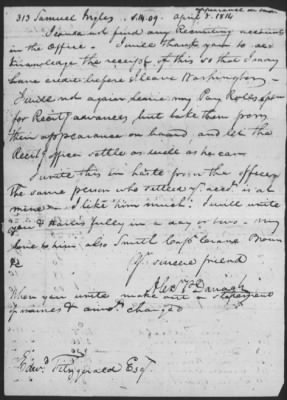 appearance on board
313 Samuel Myles. S.N.09. april 8. 1814
I could not find any Recruiting accounts
in the Office. I will thank you to ac
knowledge the receipt of this so that I may
have credit before I leave Washington.
I will not again leave my Pay Rolls open
for Recruitg advances but take them from
their appearance on board, and let the
Recruitg officer settle as well as he can.
I write this in haste from the office
The same person who settled yr. acct. is at
mine I like him much. I will write
you & fully in a day or two - my
love to him also Smith Capt Crane Brown
&c
Yr. sincere friend
Alex McDanagh
When you write make out a statement
of names & amot. charged
Edwd. Fitzgerald Esqr.